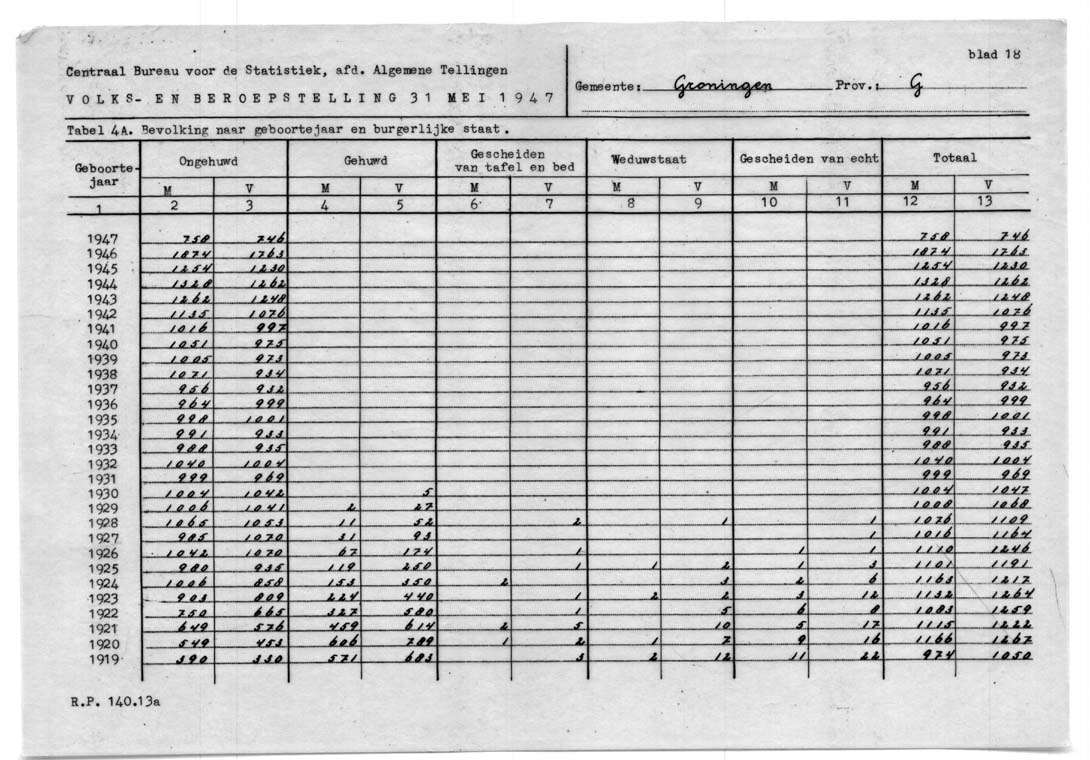 blad 18
Centraal Bureau voor de Statistiek, afd. Algemene Tellingen
Gemeente: Groningen Prov.: G
VOLKS- EN BEROEPSTELLING 31 MEI 1947
Tabel 4A. Bevolking naar geboortejaar en burgerlijke staat.
Geboorte-jaar Ongehuwd Gehuwd Gescheiden van tafel en bed Weduwstaat Gescheiden van echt Totaal
M V M V M V M V M V M V
1 2 3 4 5 6 7 8 9 10 11 12 13
1947 758 746 758 746
1946 1874 1763 1874 1763
1945 1254 1230 1254 1230
1944 1328 1262 1328 1262
1943 1262 1248 1262 1248
1942 1135 1076 1135 1076
1941 1016 997 1016 997
1940 1051 975 1051 975
1939 1005 973 1005 973
1938 1071 934 1071 934
1937 956 932 956 932
1936 964 999 964 999
1935 998 1001 998 1001
1934 991 933 991 933
1933 988 935 988 935
1932 1040 1004 1040 1004
1931 999 969 999 969
1930 1004 1042 5 1004 1047
1929 1006 1041 2 27 1008 1068
1928 1065 1053 11 52 2 1 1 1076 1109
1927 985 1070 31 93 1 1016 1164
1926 1042 1070 67 174 1 1 1 1110 1246
1925 980 935 119 250 1 1 2 1 3 1101 1191
1924 1006 858 153 350 2 3 2 6 1163 1217
1923 903 809 224 440 1 2 2 3 12 1132 1264
1922 750 665 327 580 1 5 6 8 1083 1259
1921 649 576 459 614 2 5 10 5 17 1115 1222
1920 549 453 606 789 1 2 1 7 9 16 1166 1267
1919 390 330 571 683 3 2 12 11 22 974 1050
R.P. 140.13a